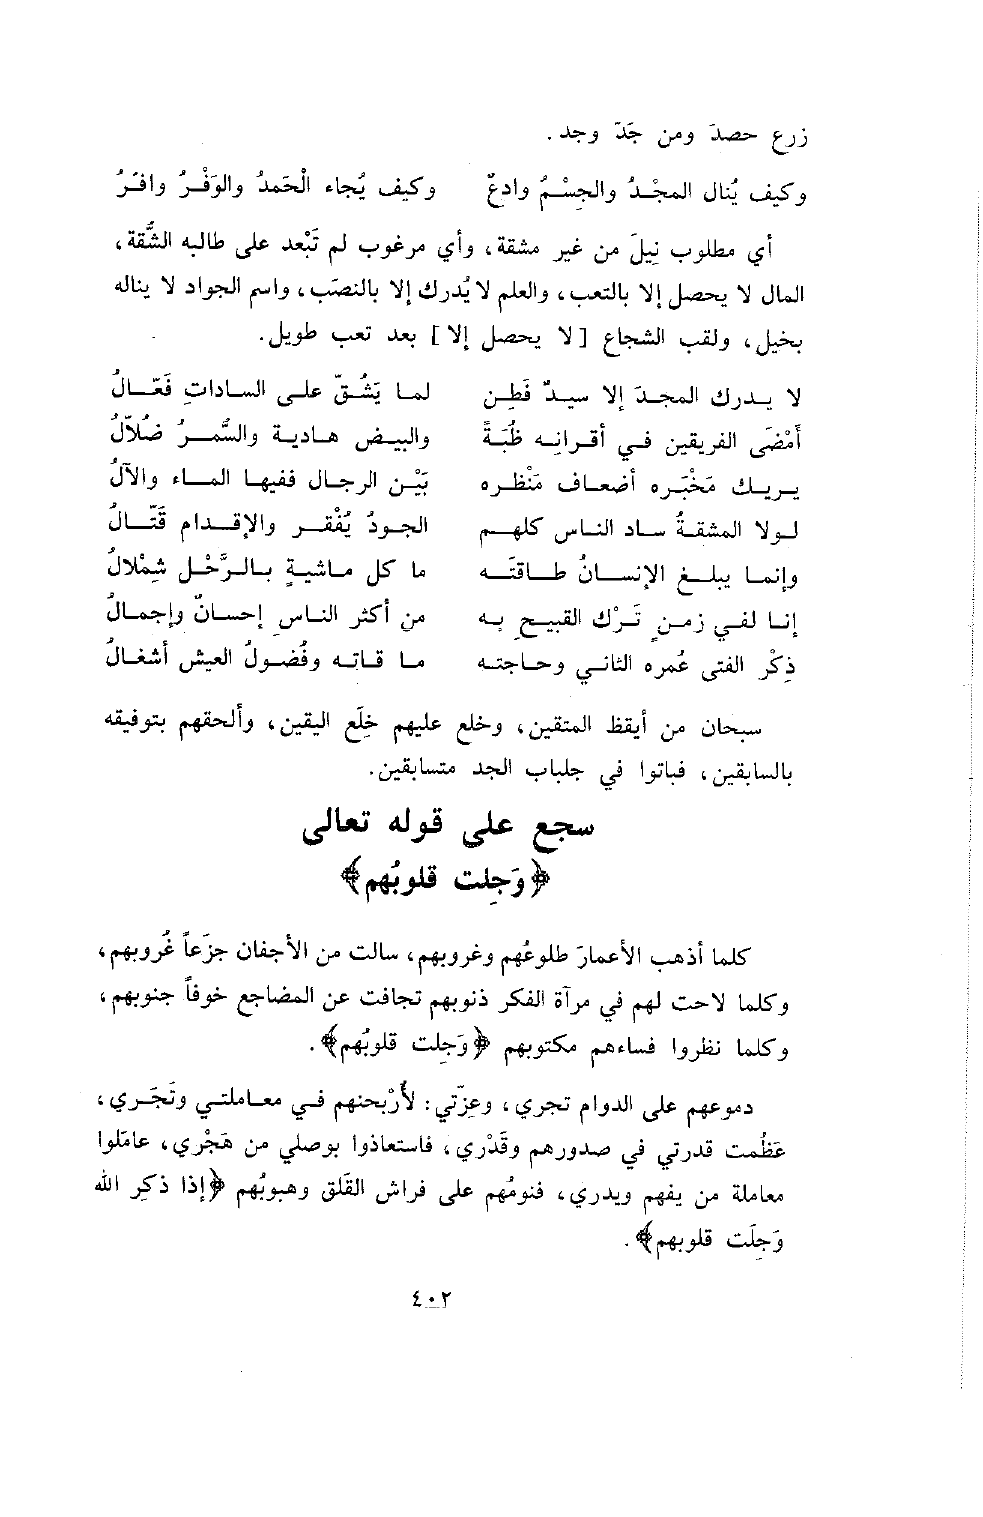 زرع حصدَ ومن جَدّ وجد.
وكيف يُنال المجْدُ والجِسْمُ وادِعٌ وكيف يُجاء الْحَمدُ والوَفْرُ وافرُ
أي مطلوب نِيلَ من غير مشقة، وأي مرغوب لم تَبْعد على طالبه الشُّقة،
المال لا يحصل إلا بالتعب، والعلم لا يُدرك إلا بالنصَب، واسم الجواد لا يناله
بخيل، ولقب الشجاع [لا يحصل إلا] بعد تعب طويل.
لا يدرك المجدَ إلا سيدٌ فَطِن لما يَشُقّ على السادات فَعّالُ
أمْضَى الفريقين في أقرانه ظُبَةً والبيض هادية والسُّمرُ ضُلّالُ
يريك مَخْبَره أضعاف مَنْظره بَيْن الرجال ففيها الماء والآلُ
لولا المشقةُ ساد الناس كلهم الجودُ يُفْقر والإقدام قَتّالُ
وإنما يبلغ الإنسانُ طاقتَه ما كل ماشية بالرَّحْل شِمْلالُ
إنا لفي زمنٍ تَرْك القبيح به من أكثر الناس إحسانٌ وإجمالُ
ذِكْر الفتى عُمره الثاني وحاجته ما قاته وفُضولُ العيش أشغالُ
سبحان من أيقظ المتقين، وخلع عليهم خِلَع اليقين، وألحقهم بتوفيقه
بالسابقين، فباتوا في جلباب الجد متسابقين.
سجع على قوله تعالى
﴿وَجِلت قلوبُهم﴾
كلما أذهب الأعمارَ طلوعُهم وغروبهم، سالت من الأجفان جزَعاً غُروبهم،
وكلما لاحت لهم في مرآة الفكر ذنوبهم تجافت عن المضاجع خوفاً جنوبهم،
وكلما نظروا فساءهم مكتوبهم ﴿وَجِلت قلوبُهم﴾.
دموعهم على الدوام تجري، وعِزّتي: لأُرْبحنهم في معاملتي وتَجْري،
عَظُمت قدرتي في صدورهم وقَدْري، فاستعاذوا بوصلي من هَجْري، عامَلوا
معاملة من يفهم ويدري، فنومُهم على فراش القَلق وهبوبُهم ﴿إذا ذكِر الله
وَجِلَت قلوبهم﴾.
٤٠٢